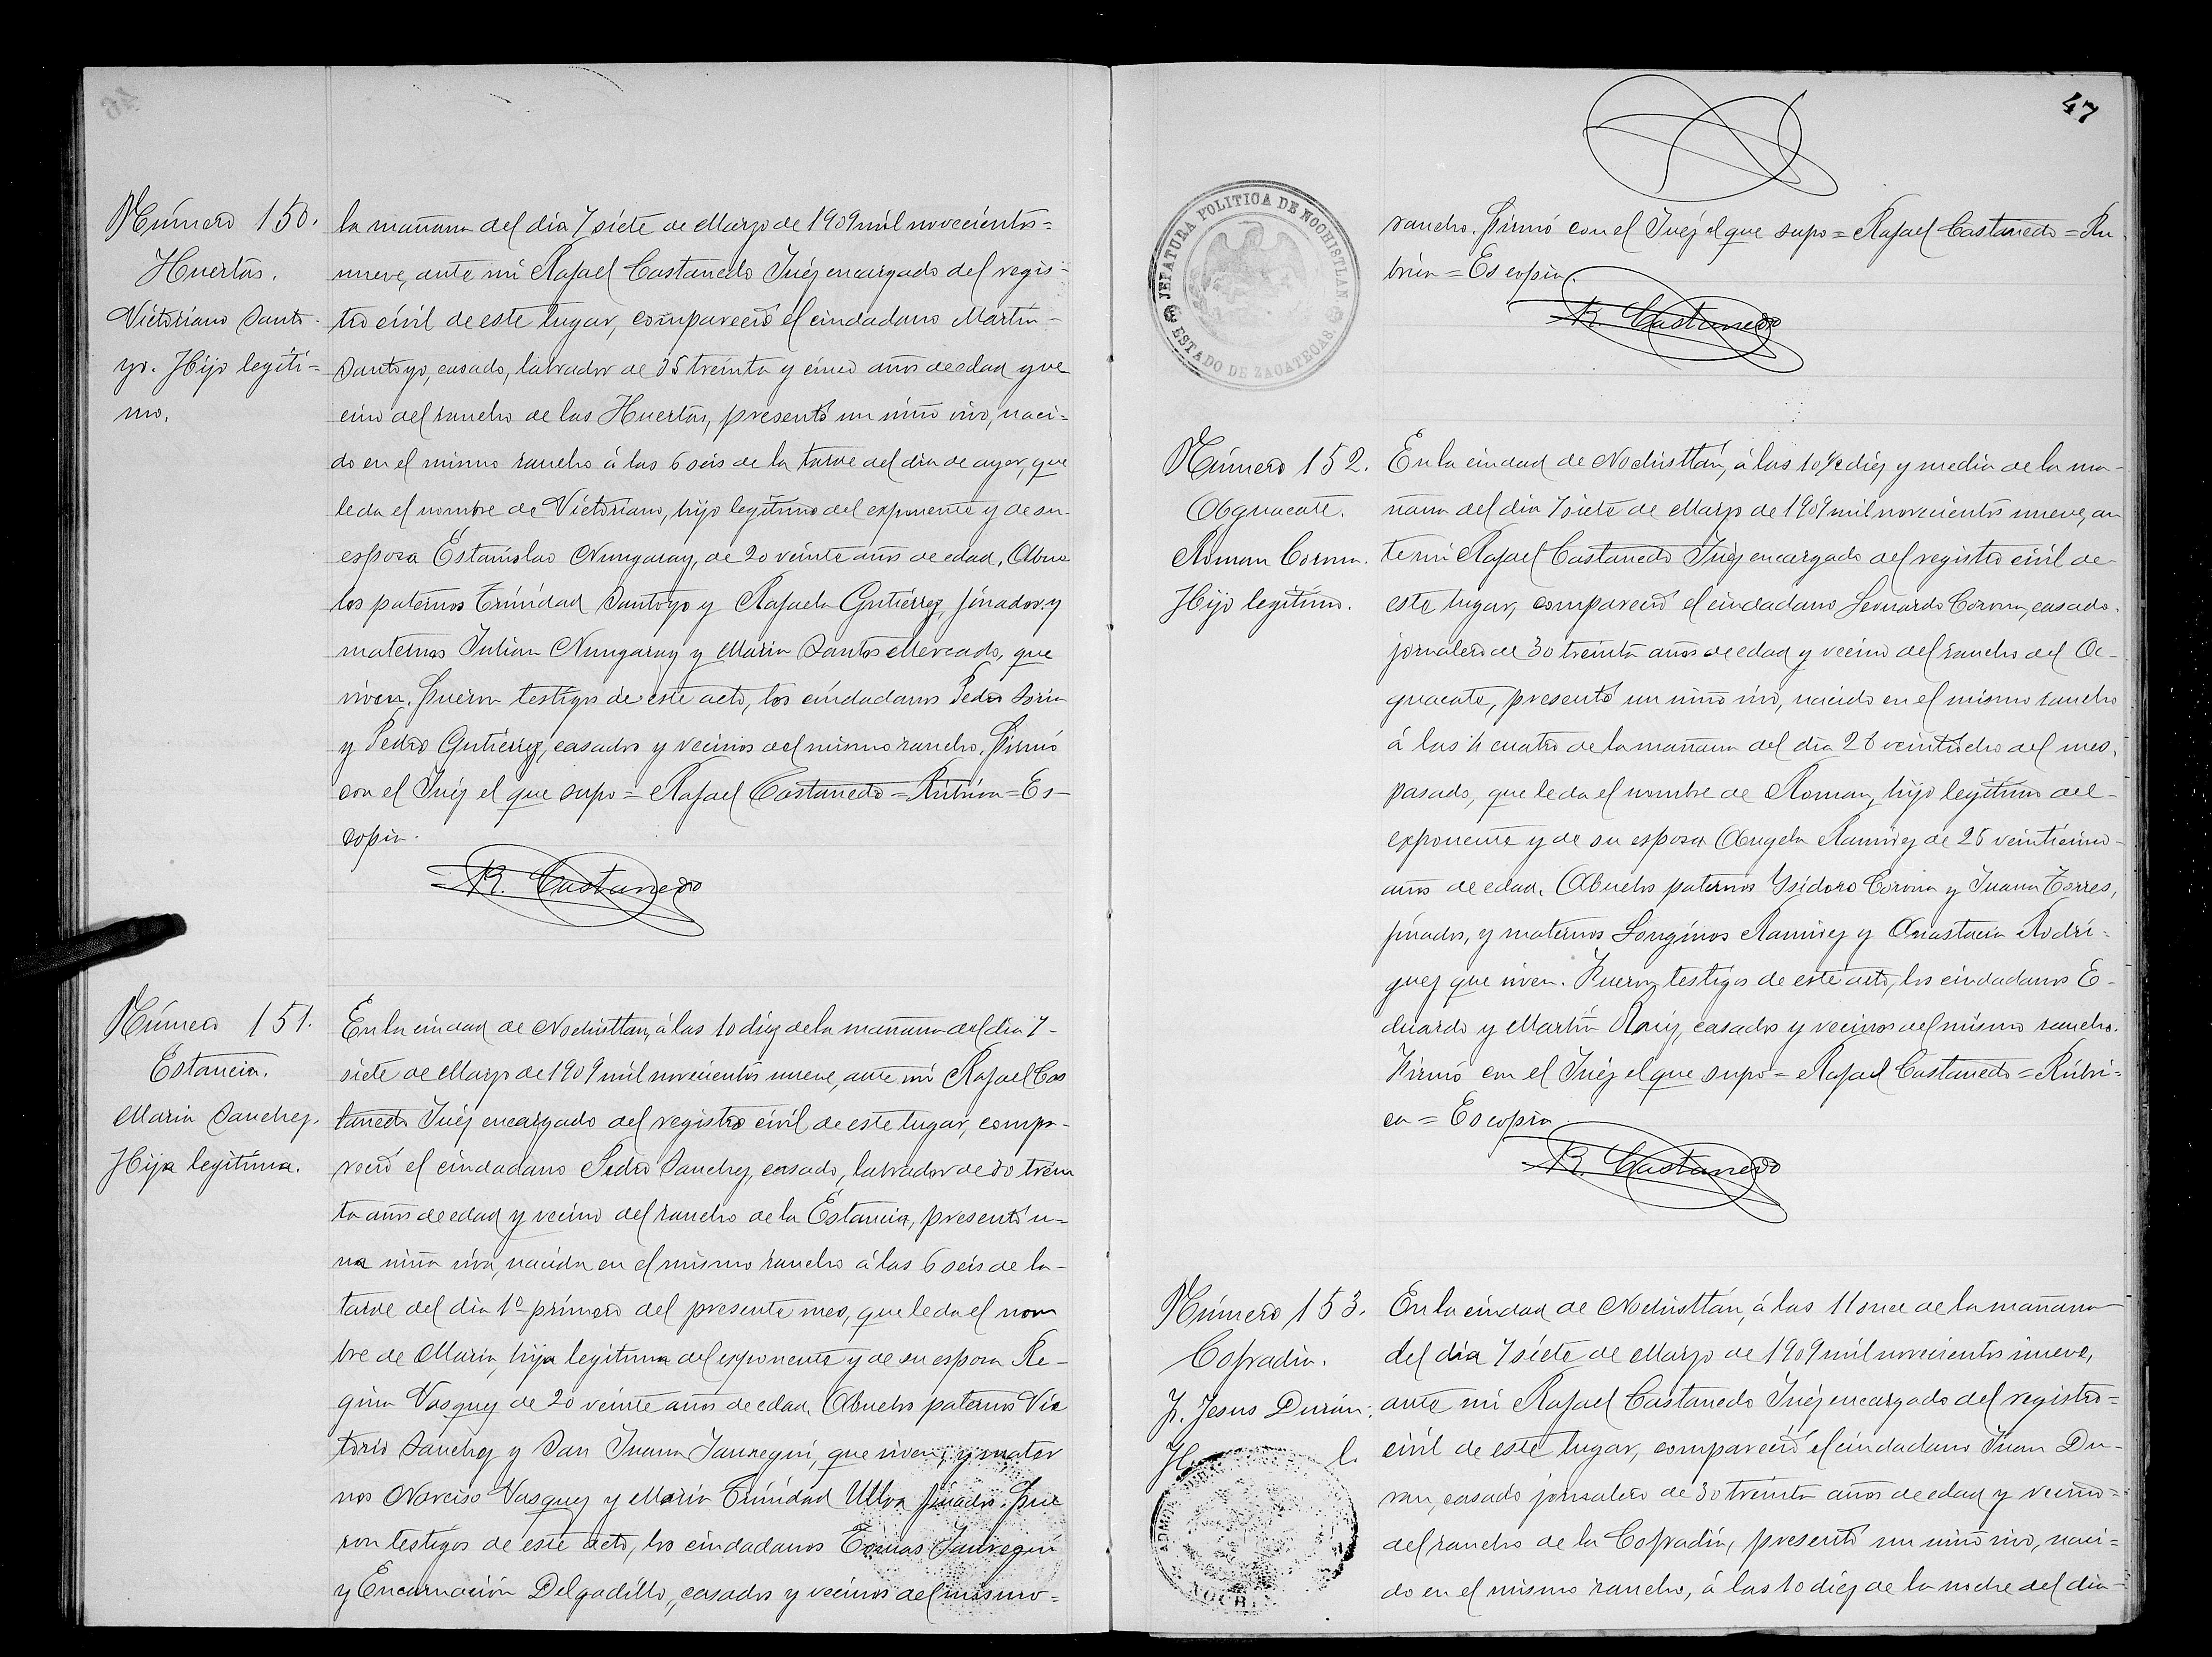 Número 150.
Huertas.
Victoriano Santo-
yo. Hijo legíti=
mo.
la mañana del dia 7 siete de Marzo de 1909 mil novecientos=
nueve, ante mi Rafael Castañedo Juéz encargado del regis-
tro civil de este lugar, compareció el ciudadano Martin-
Santoyo, casado, labrador de 35 treinta y cinco años de edad y ve
cino del rancho de las Huertas, presentó un niño vivo, naci=
do en el mismo rancho á las 6 seis de la tarde del dia de ayer, que
le da el nombre de Victoriano, hijo legítimo del exponente y de su-
esposa Estanislao Nungaray, de 20 veinte años de edad, Abue
los paternos Trinidad Santoyo y Rafaela Gutiérrez, finados y
maternos Julian Nungaray y Maria Santos Mercado, que
viven. Fueron testigos de este acto, los ciudadanos Pedro Soria
y Pedro Gutiérrez, casados y vecinos del mismo rancho. Firmó
con el Juéz el que supo = Rafael Castañedo = Rúbrica = Es-
copia.
R. Castanedo
Número 151.
Estancia.
Maria Sanchez.
Hija legitima.
En la ciudad de Nochistlan, á las 10 diez de la mañana del dia 7-
siete de Marzo de 1909 mil novecientos nueve, ante mi Rafael Cas
tañedo Juéz encargado del registro civil de este lugar, compa-
reció el ciudadano Pedro Sanchez, casado, labrador de 30 trein
ta años de edad y vecino del rancho de la Estancia, presentó u=
na niña viva, nacida en el mismo rancho á las 6 seis de la-
tarde del dia 1º primero del presente mes, que le da el nom
bre de Maria, hija legitima del exponente y de su esposa Re-
gina Vasquez de 20 veinte años de edad. Abuelos paternos Vic
torio Sanchez y San Juana Jauregui, que viven, y mater
nos Narciso Vasquez y Maria Trinidad Ulloa finados. Fue
ron testigos de este acto, los ciudadanos Tomas Jauregui
y Encarnación Delgadillo, casados y vecinos del mismo=
47
JEFATURA POLITICA DE NOCHISTLAN
ESTADO DE ZACATECAS
rancho. Firmó con el Juéz el que supo = Rafael Castañedo = Ru
brica = Es copia.
R. Castanedo
Número 152.
Aguacate.
Roman Corona.
Hijo legítimo.
En la ciudad de Nochistlán, á las 10½ diez y media de la ma-
ñana del dia 7 siete de Marzo de 1909 mil novecientos nueve, an
te mi Rafael Castañedo Juéz encargado del registro civil de-
este lugar, compareció el ciudadano Leonardo Corona, casado.
jornalero de 30 treinta años de edad y vecino del rancho del A-
guacate, presentó un niño vivo, nacido en el mismo rancho
á las 4 cuatro de la mañana del dia 28 veintiocho del mes.
pasado, que le da el nombre de Roman, hijo legítimo del-
exponente y de su esposa Angela Ramirez de 25 veinticinco-
años de edad. Abuelos paternos Ysidoro Corona y Juana Torres,
finados, y maternos Longinos Ramirez y Anastacia Rodrí-
guez que viven. Fueron testigos de este acto, los ciudadanos E-
duardo y Martín Ruiz, casados y vecinos del mismo rancho.
Firmó con el Juéz el que supo = Rafael Castañedo = Rúbri=
ca = Es copia
R. Castanedo
Número 153.
Cofradia.
J. Jesus Durán.
H. l.
NOCHI
En la ciudad de Nochistlán, á las 11 once de la mañana-
del dia 7 siete de Marzo de 1909 mil novecientos nueve,
ante mi Rafael Castañedo Juéz encargado del registro=
civil de este lugar, compareció el ciudadano Juan Du-
ran, casado jornalero de 30 treinta años de edad y vecino=
del rancho de la Cofradia, presentó un niño vivo, naci=
do en el mismo rancho, á las 10 diez de la noche del dia-